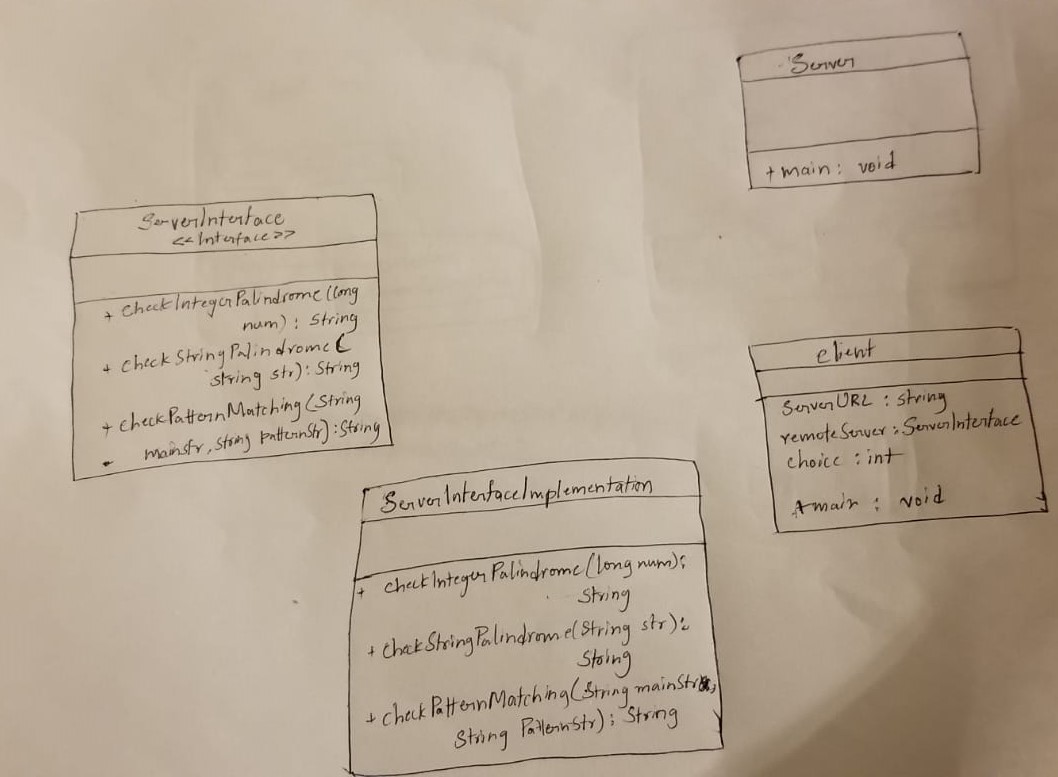 Server
+ main : void
ServerInterface
<<Interface>>
+ checkIntegerPalindrome (long
num) : String
+ checkStringPalindrome (
string str) : String
+ checkPatternMatching (String
mainstr, String patternStr) : String
client
serverURL : string
remoteServer : ServerInterface
choice : int
+ main : void
ServerInterfaceImplementation
+ checkIntegerPalindrome (long num) :
String
+ checkStringPalindrome (String str) :
String
+ checkPatternMatching (String mainStr,
String PatternStr) : String